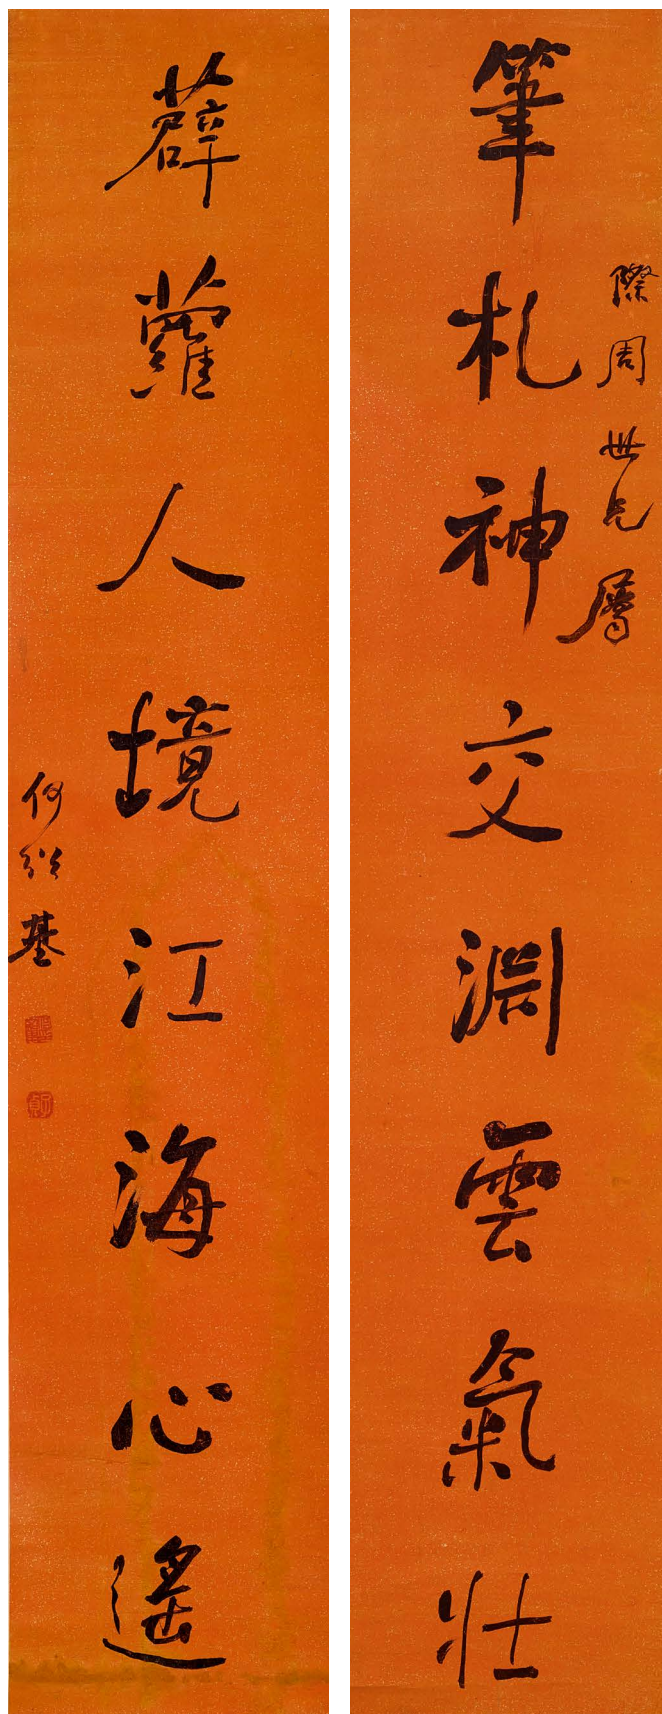 筆札神交淵雲氣壯
際周世兄屬
薜蘿人境江海心遙
何紹基